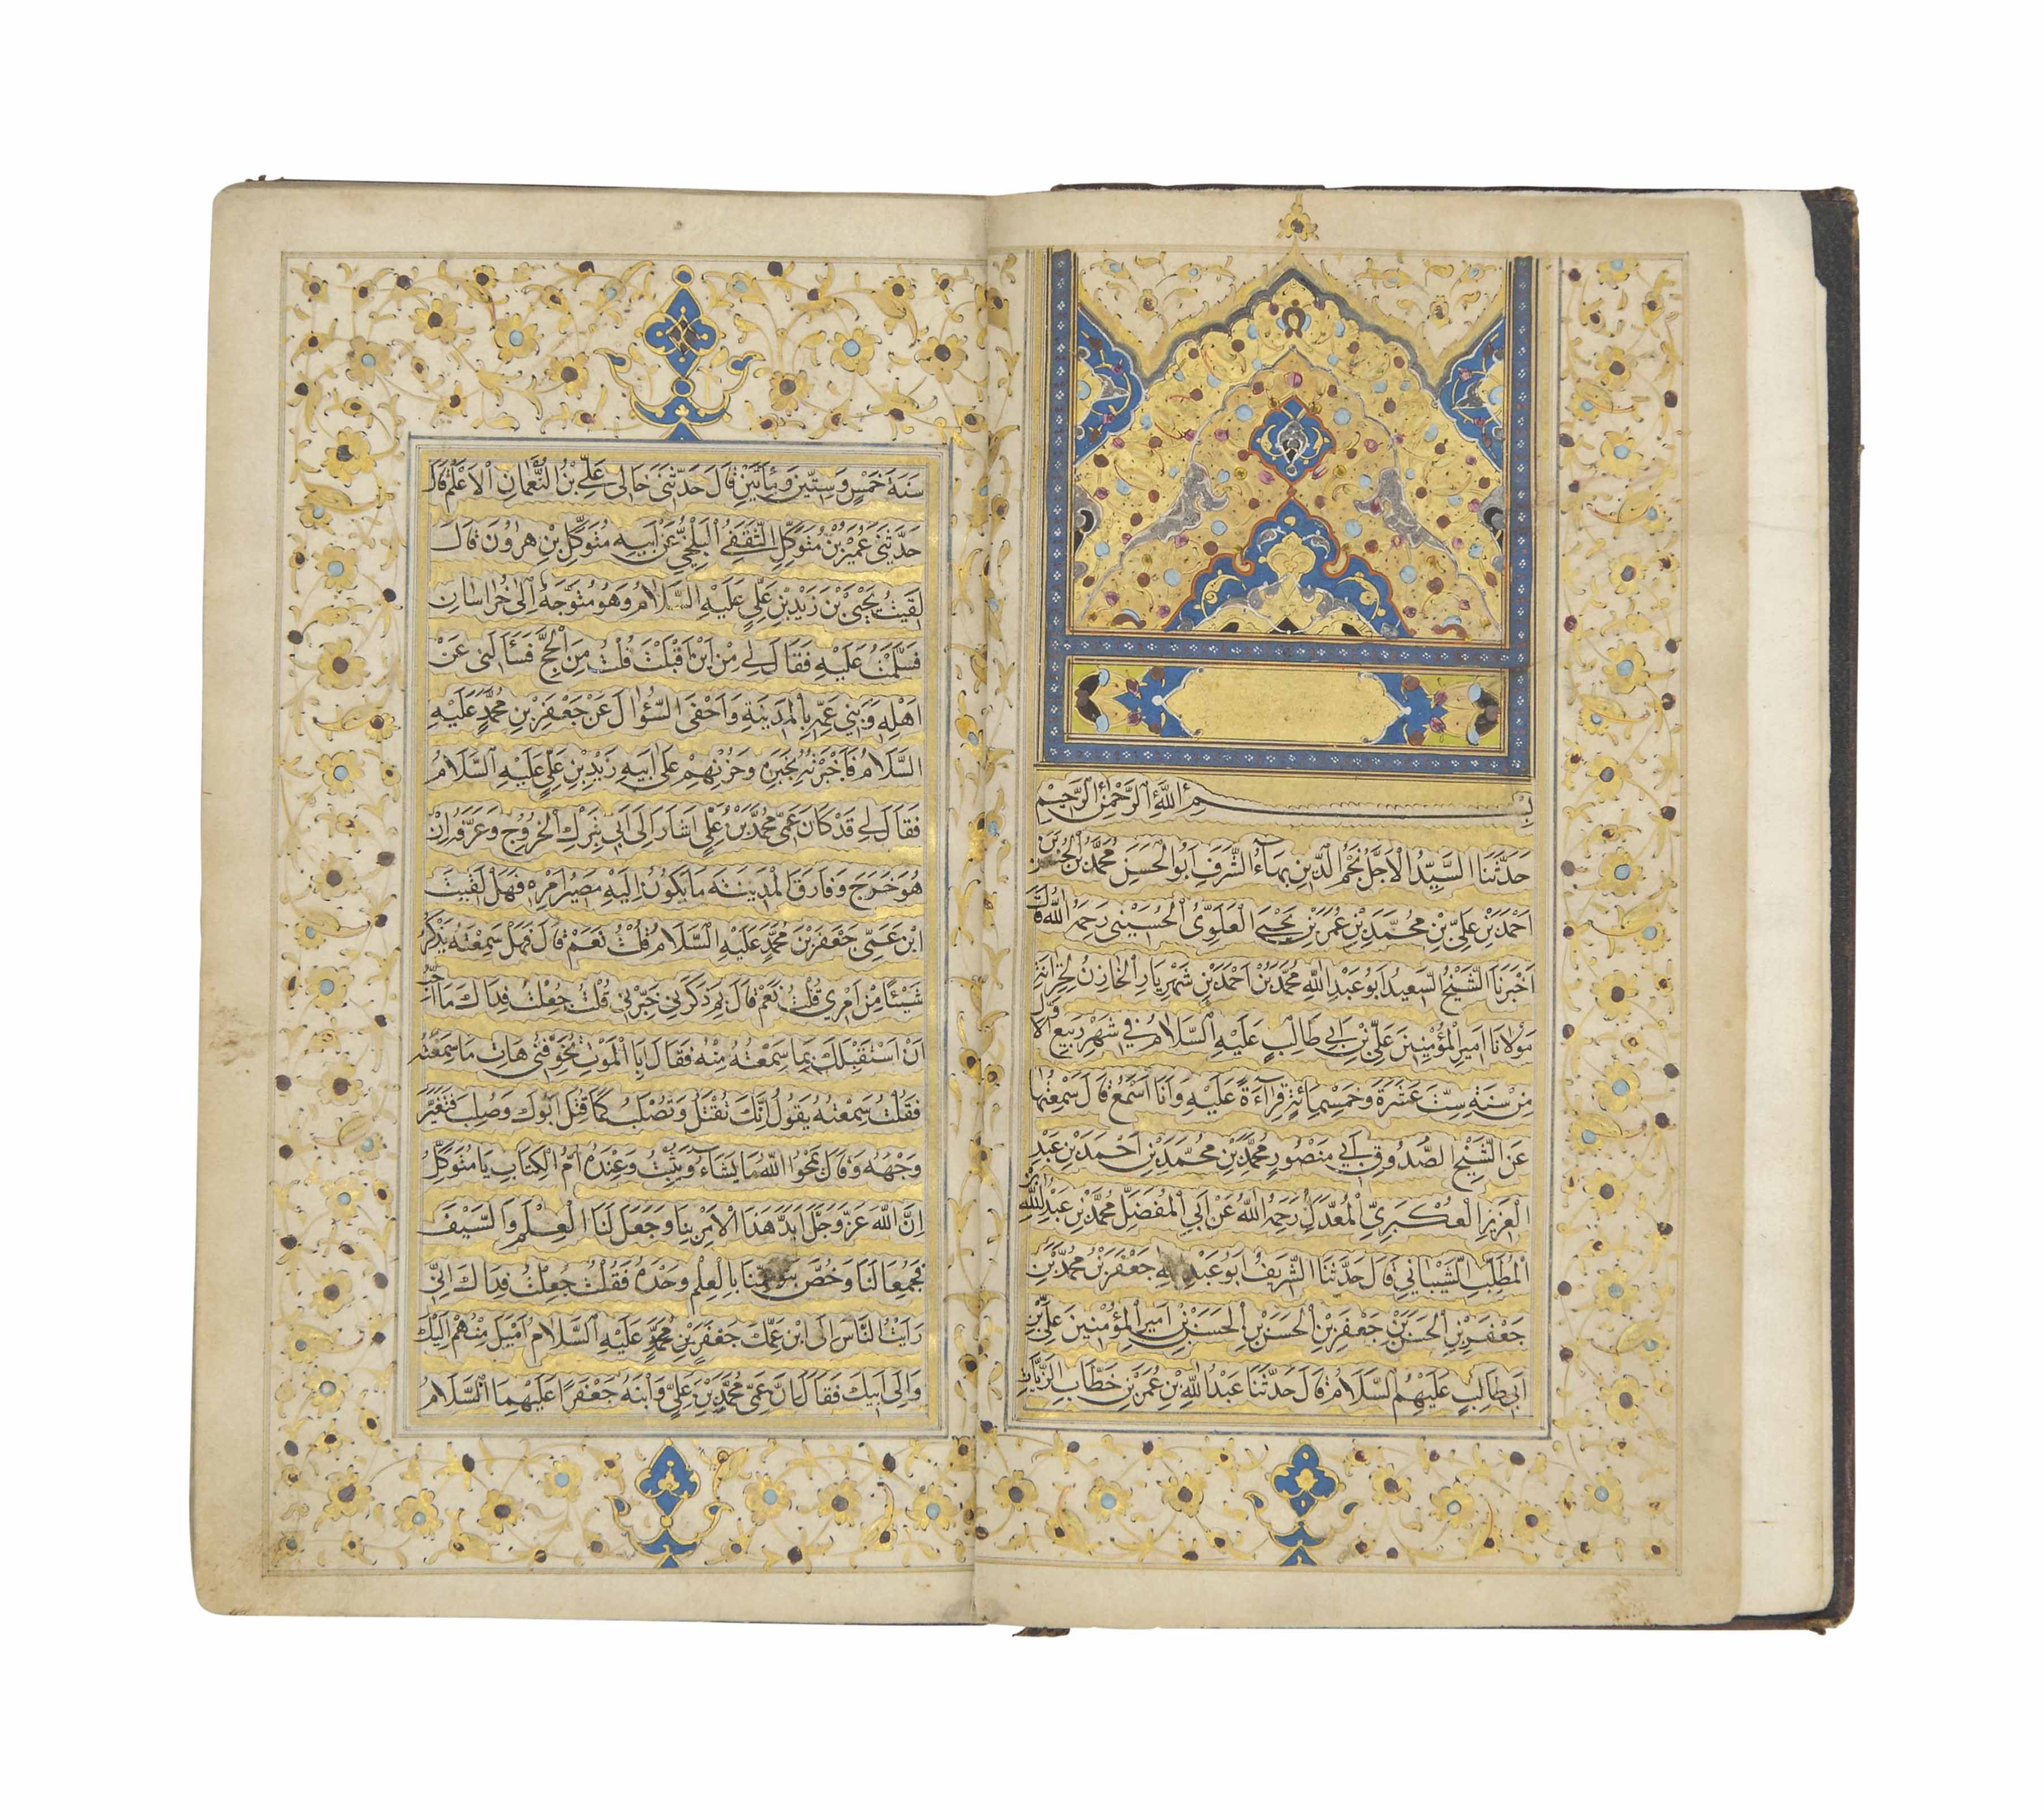 بِسْمِ اللَّهِ الرَّحْمٰنِ الرَّحِيمِ
حَدَّثَنَا السَّيِّدُ الْاَجَلُّ نَجْمُ الدِّينِ بَهَاۤءُ الشَّرَفِ اَبُو الْحَسَنِ مُحَمَّدُ بْنُ الْحَسَنِ بْنِ
اَحْمَدَ بْنِ عَلِيِّ بْنِ مُحَمَّدِ بْنِ عُمَرَ بْنِ يَحْيَى الْعَلَوِيُّ الْحُسَيْنِيُّ رَحِمَهُ اللَّهُ قَالَ
اَخْبَرَنَا الشَّيْخُ السَّعِيدُ اَبُو عَبْدِ اللَّهِ مُحَمَّدُ بْنُ اَحْمَدَ بْنِ شَهْرِيَارَ الْخَازِنُ لِخِزَانَةِ
مَوْلَانَا اَمِيرِ الْمُؤْمِنِينَ عَلِيِّ بْنِ اَبِي طَالِبٍ عَلَيْهِ السَّلَامُ فِي شَهْرِ رَبِيعِ الْاَوَّلِ
مِنْ سَنَةِ سِتَّ عَشَرَةَ وَخَمْسِمِائَةٍ قِرَاۤءَةً عَلَيْهِ وَاَنَا اَسْمَعُ قَالَ سَمِعْتُهَا
عَنِ الشَّيْخِ الصَّدُوقِ اَبِي مَنْصُورٍ مُحَمَّدِ بْنِ مُحَمَّدِ بْنِ اَحْمَدَ بْنِ عَبْدِ
الْعَزِيزِ الْعُكْبَرِيِّ الْمُعَدَّلِ رَحِمَهُ اللَّهُ عَنْ اَبِي الْمُفَضَّلِ مُحَمَّدِ بْنِ عَبْدِ اللَّهِ بْنِ
الْمُطَّلِبِ الشَّيْبَانِيِّ قَالَ حَدَّثَنَا الشَّرِيفُ اَبُو عَبْدِ اللَّهِ جَعْفَرُ بْنُ مُحَمَّدِ بْنِ
جَعْفَرِ بْنِ الْحَسَنِ بْنِ جَعْفَرِ بْنِ الْحَسَنِ بْنِ الْحَسَنِ بْنِ اَمِيرِ الْمُؤْمِنِينَ عَلِيِّ بْنِ
اَبِي طَالِبٍ عَلَيْهِمُ السَّلَامُ قَالَ حَدَّثَنَا عَبْدُ اللَّهِ بْنُ عُمَرَ بْنِ خَطَّابٍ الزَّيَّاتُ
سَنَةَ خَمْسٍ وَسِتِّينَ وَمِأَتَيْنِ قَالَ حَدَّثَنِي خَالِي عَلِيُّ بْنُ النُّعْمَانِ الْاَعْلَمُ قَالَ
حَدَّثَنِي عُمَيْرُ بْنُ مُتَوَكِّلٍ الثَّقَفِيُّ الْبَلْخِيُّ عَنْ اَبِيهِ مُتَوَكِّلِ بْنِ هٰرُونَ قَالَ
لَقِيتُ يَحْيَى بْنَ زَيْدِ بْنِ عَلِيٍّ عَلَيْهِ السَّلَامُ وَهُوَ مُتَوَجِّهٌ اِلَى خُرَاسَانَ
فَسَلَّمْتُ عَلَيْهِ فَقَالَ لِي مِنْ اَيْنَ اَقْبَلْتَ قُلْتُ مِنَ الْحَجِّ فَسَأَلَنِي عَنْ
اَهْلِهِ وَبَنِي عَمِّهِ بِالْمَدِينَةِ وَاَحْفَى السُّؤَالَ عَنْ جَعْفَرِ بْنِ مُحَمَّدٍ عَلَيْهِ
السَّلَامُ فَاَخْبَرْتُهُ بِخَبَرِهِ وَحُزْنِهِمْ عَلَى اَبِيهِ زَيْدِ بْنِ عَلِيٍّ عَلَيْهِ السَّلَامُ
فَقَالَ لِي قَدْ كَانَ عَمِّي مُحَمَّدُ بْنُ عَلِيٍّ اَشَارَ اِلَى اَبِي بِتَرْكِ الْخُرُوجِ وَعَرَّفَهُ اِنْ
هُوَ خَرَجَ وَفَارَقَ الْمَدِينَةَ مَا يَكُونُ اِلَيْهِ مَصِيرُ اَمْرِهِ فَهَلْ لَقِيتَ
ابْنَ عَمِّي جَعْفَرَ بْنَ مُحَمَّدٍ عَلَيْهِ السَّلَامُ قُلْتُ نَعَمْ قَالَ فَهَلْ سَمِعْتَهُ يَذْكُرُ
شَيْئًا مِنْ اَمْرِي قُلْتُ نَعَمْ قَالَ بِمَ ذَكَرَنِي خَبِّرْنِي قُلْتُ جُعِلْتُ فِدَاكَ مَا اُحِبُّ
اَنْ اَسْتَقْبِلَكَ بِمَا سَمِعْتُهُ مِنْهُ فَقَالَ اَبِالْمَوْتِ تُخَوِّفُنِي هَاتِ مَا سَمِعْتَهُ
فَقُلْتُ سَمِعْتُهُ يَقُولُ اِنَّكَ تُقْتَلُ وَتُصْلَبُ كَمَا قُتِلَ اَبُوكَ وَصُلِبَ فَتَغَيَّرَ
وَجْهُهُ وَقَالَ يَمْحُوا اللَّهُ مَا يَشَاۤءُ وَيُثْبِتُ وَعِنْدَهُ اُمُّ الْكِتَابِ يَا مُتَوَكِّلُ
اِنَّ اللَّهَ عَزَّ وَجَلَّ اَيَّدَ هَذَا الْاَمْرَ بِنَا وَجَعَلَ لَنَا الْعِلْمَ وَالسَّيْفَ
فَجُمِعَا لَنَا وَخُصَّ بَنُو عَمِّنَا بِالْعِلْمِ وَحْدَهُ فَقُلْتُ جُعِلْتُ فِدَاكَ اِنِّي
رَاَيْتُ النَّاسَ اِلَى ابْنِ عَمِّكَ جَعْفَرِ بْنِ مُحَمَّدٍ عَلَيْهِ السَّلَامُ اَمْيَلَ مِنْهُمْ اِلَيْكَ
وَاِلَى اَبِيكَ فَقَالَ اِنَّ عَمِّي مُحَمَّدَ بْنَ عَلِيٍّ وَابْنَهُ جَعْفَرًا عَلَيْهِمَا السَّلَامُ